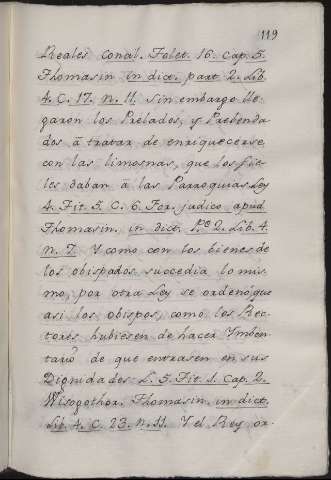 119
Reales conal. Folet. 16. cap. 5.
Thomasin in dict. part. 2. Lib.
4. C. 17. n. 11. Sin embargo lle-
garon los Prelados, y Prebenda
dos â tratar de enriquecerse
con las limosnas, que los fie-
les daban â las Parroquias Ley
4. Tit. 5. C. 6. For. judico apud
Thomasin. in dict. P.e 2. Lib. 4.
n. 7. Y como con los bienes de
los obispados succedia lo mis-
mo, por otra Ley se ordenó que
asi los obispos, como los Rec-
tores hubiesen de hacer Ymben-
tario de que entrasen en sus
Dignidades: L. 5. Tit. 1. Cap. 2.
Wisogothor. Thomasin. in dict.
Lib. 4. C. 23. n. 11. Y el Rey or-